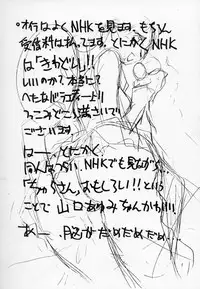 °オイラはよくNHKを見ます。もちろん
受信料は払ってます。とにかくNHK
は「きわどい」!!
いいのか?て本当にて
へたなバラエティーより
つっこみどころ満さいで
ございます。
はー…とにかく
NHKでも見ながら…
「ちゅらさん」おもしろい!!という
ことで 山口あゆみなんかも!!!
あー …脳がだめだめだめ…